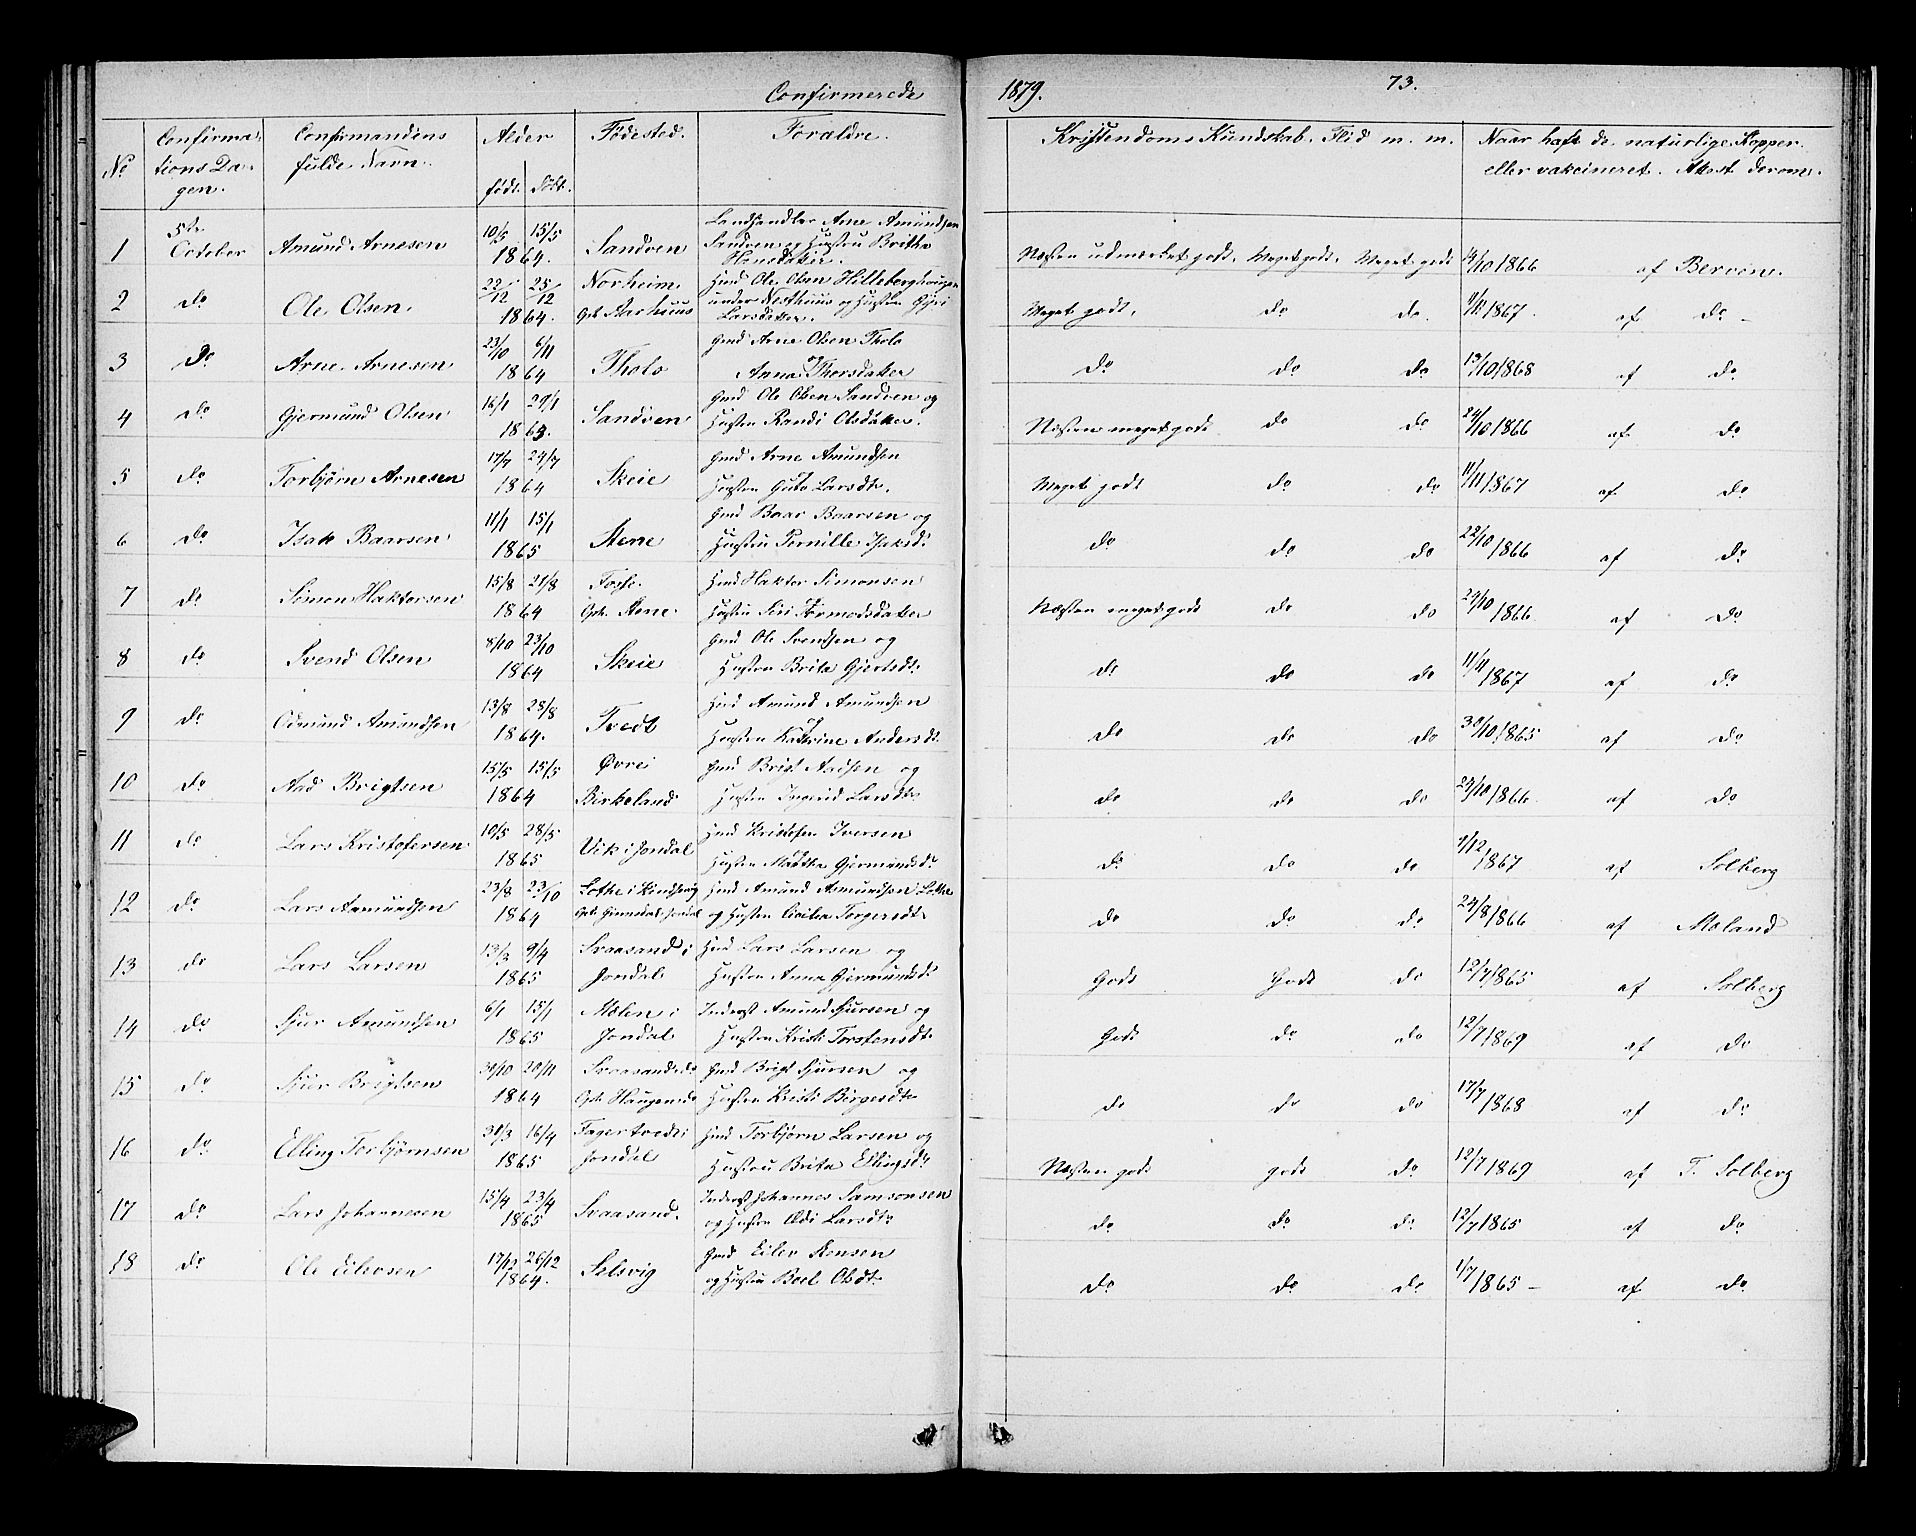 Confirmerede 1879. 73.
No Confirmationsdagen. Confirmandens fulde Navn. Alder født. døbt. Fødested. Forældre. Kristendoms Kundskab. Flid m. m. Naar haft de naturlige Kopper eller vakcineret. Attest derom.
1 5te October Amund Arnesen 10/5 15/5 1864. Sandven Landhandler Arne Amundsen Sandven og Hustru Britha Hansdatter. Næsten udmærket godt. Meget godt. Meget godt 1866 af Berven.
2 do Ole Olsen. 22/12 25/12 1864. Norheim. Gpl. Aarhuus Hmd Ole Olsen under og Hustru Larsdatter. Meget godt. do do. 1867. af do –
3 do Arne Arnesen 23/10 6/11 1864 Tholo Gmd Arne Olsen Tholo og Anna Thorsdatter do do do 13/10 1868 af do
4 do Gjermund Olsen 16/1 29/1 1865. Sandven Gmd Ole Olsen Sandven og Hustru Randi Olsdatter. Næsten meget godt do do 24/10 1866 af do
5 do Torbjørn Arnesen 17/7 24/7 1864 Skeie Gmd Arne Amundsen Hustru Larsdt. Meget godt do do 11/11 1867 af do
6 do Isak Baarsen 11/1 15/1 1865 Stene Gmd Baar Baarsen og Hustru Pernille Isaksd. do do do 22/10 1866 af do
7 do Simon Haktorsen 15/8 21/8 1864 Fosse. Gpl. Stene. Hmd Haktor Simonsen Hustru Siri Tormodsdatter Næsten meget godt do do 24/10 1866 af do
8 do Svend Olsen 8/10 23/10 1864 Skeie Gmd Ole Svendsen og Hustru Brita Gjertsdt. do do do 11/11 1867 af do
9 do Odmund Amundsen 13/8 28/8 1864. Tvedt Hmd Amund Amundsen og Hustru Kathrine Andersdt. do do do 30/10 1865 af do
10 do Aad Brigtsen 15/5 15/5 1864 Øvre Birkeland Gmd Brigt Aadsen og Hustru Ingerid Larsdt. do do do 24/10 1866. af do
11 do Lars Kristofersen 10/5 28/5 1865 Vik i Jondal Hmd Kristofer Iversen og Hustru Martha Gjermundsd. do do do 1/12 1867 af Solberg
12 do Lars Aamundsen 23/8 23/10 1864 Lothe i Kindservig Jondal Hmd Amund Asmundsen Lothe og Hustru Cicilia Torgersdt. do do do 24/8 1866 af Moland
13 do Lars Larsen 13/3 9/4 1865 Svaasand i Jondal Hmd Lars Larsen og Hustru Anna Gjermundsd. Godt Godt do 12/7 1865 af Solberg
14 do Sjur Amundsen 6/1 15/1 1865 Mælen i Jondal Inderst Amund Sjursen og Hustru Kristi Torstensdt. Godt do do 12/7 1869 af do
15 do Sjur Brigtsen 30/10 20/11 1864 Svaasand do Gpl. Haugen do Gmd Brigt Sjursen og Hustru Kristi Birgesdt. do do do 17/7 1868 af do
16 do Elling Torbjørnsen 30/3 16/4 1865 Fagertvedt i Jondal Hmd Torbjørn Larsen og Hustru Brita Ellingsdt. Næsten godt godt do 12/7 1869 af T. Solberg
17 do Lars Johannesen 15/4 23/4 1865 Svaasand. Inderst Johannes Samsonsen og Hustru Larsdt. do do do 12/7 1865 af do
18 do Ole Eilevsen 17/12 26/12 1864. Selsvig Gmd Eilev og Hustru Boel Olsdt. do do do 1/7 1865 – af do